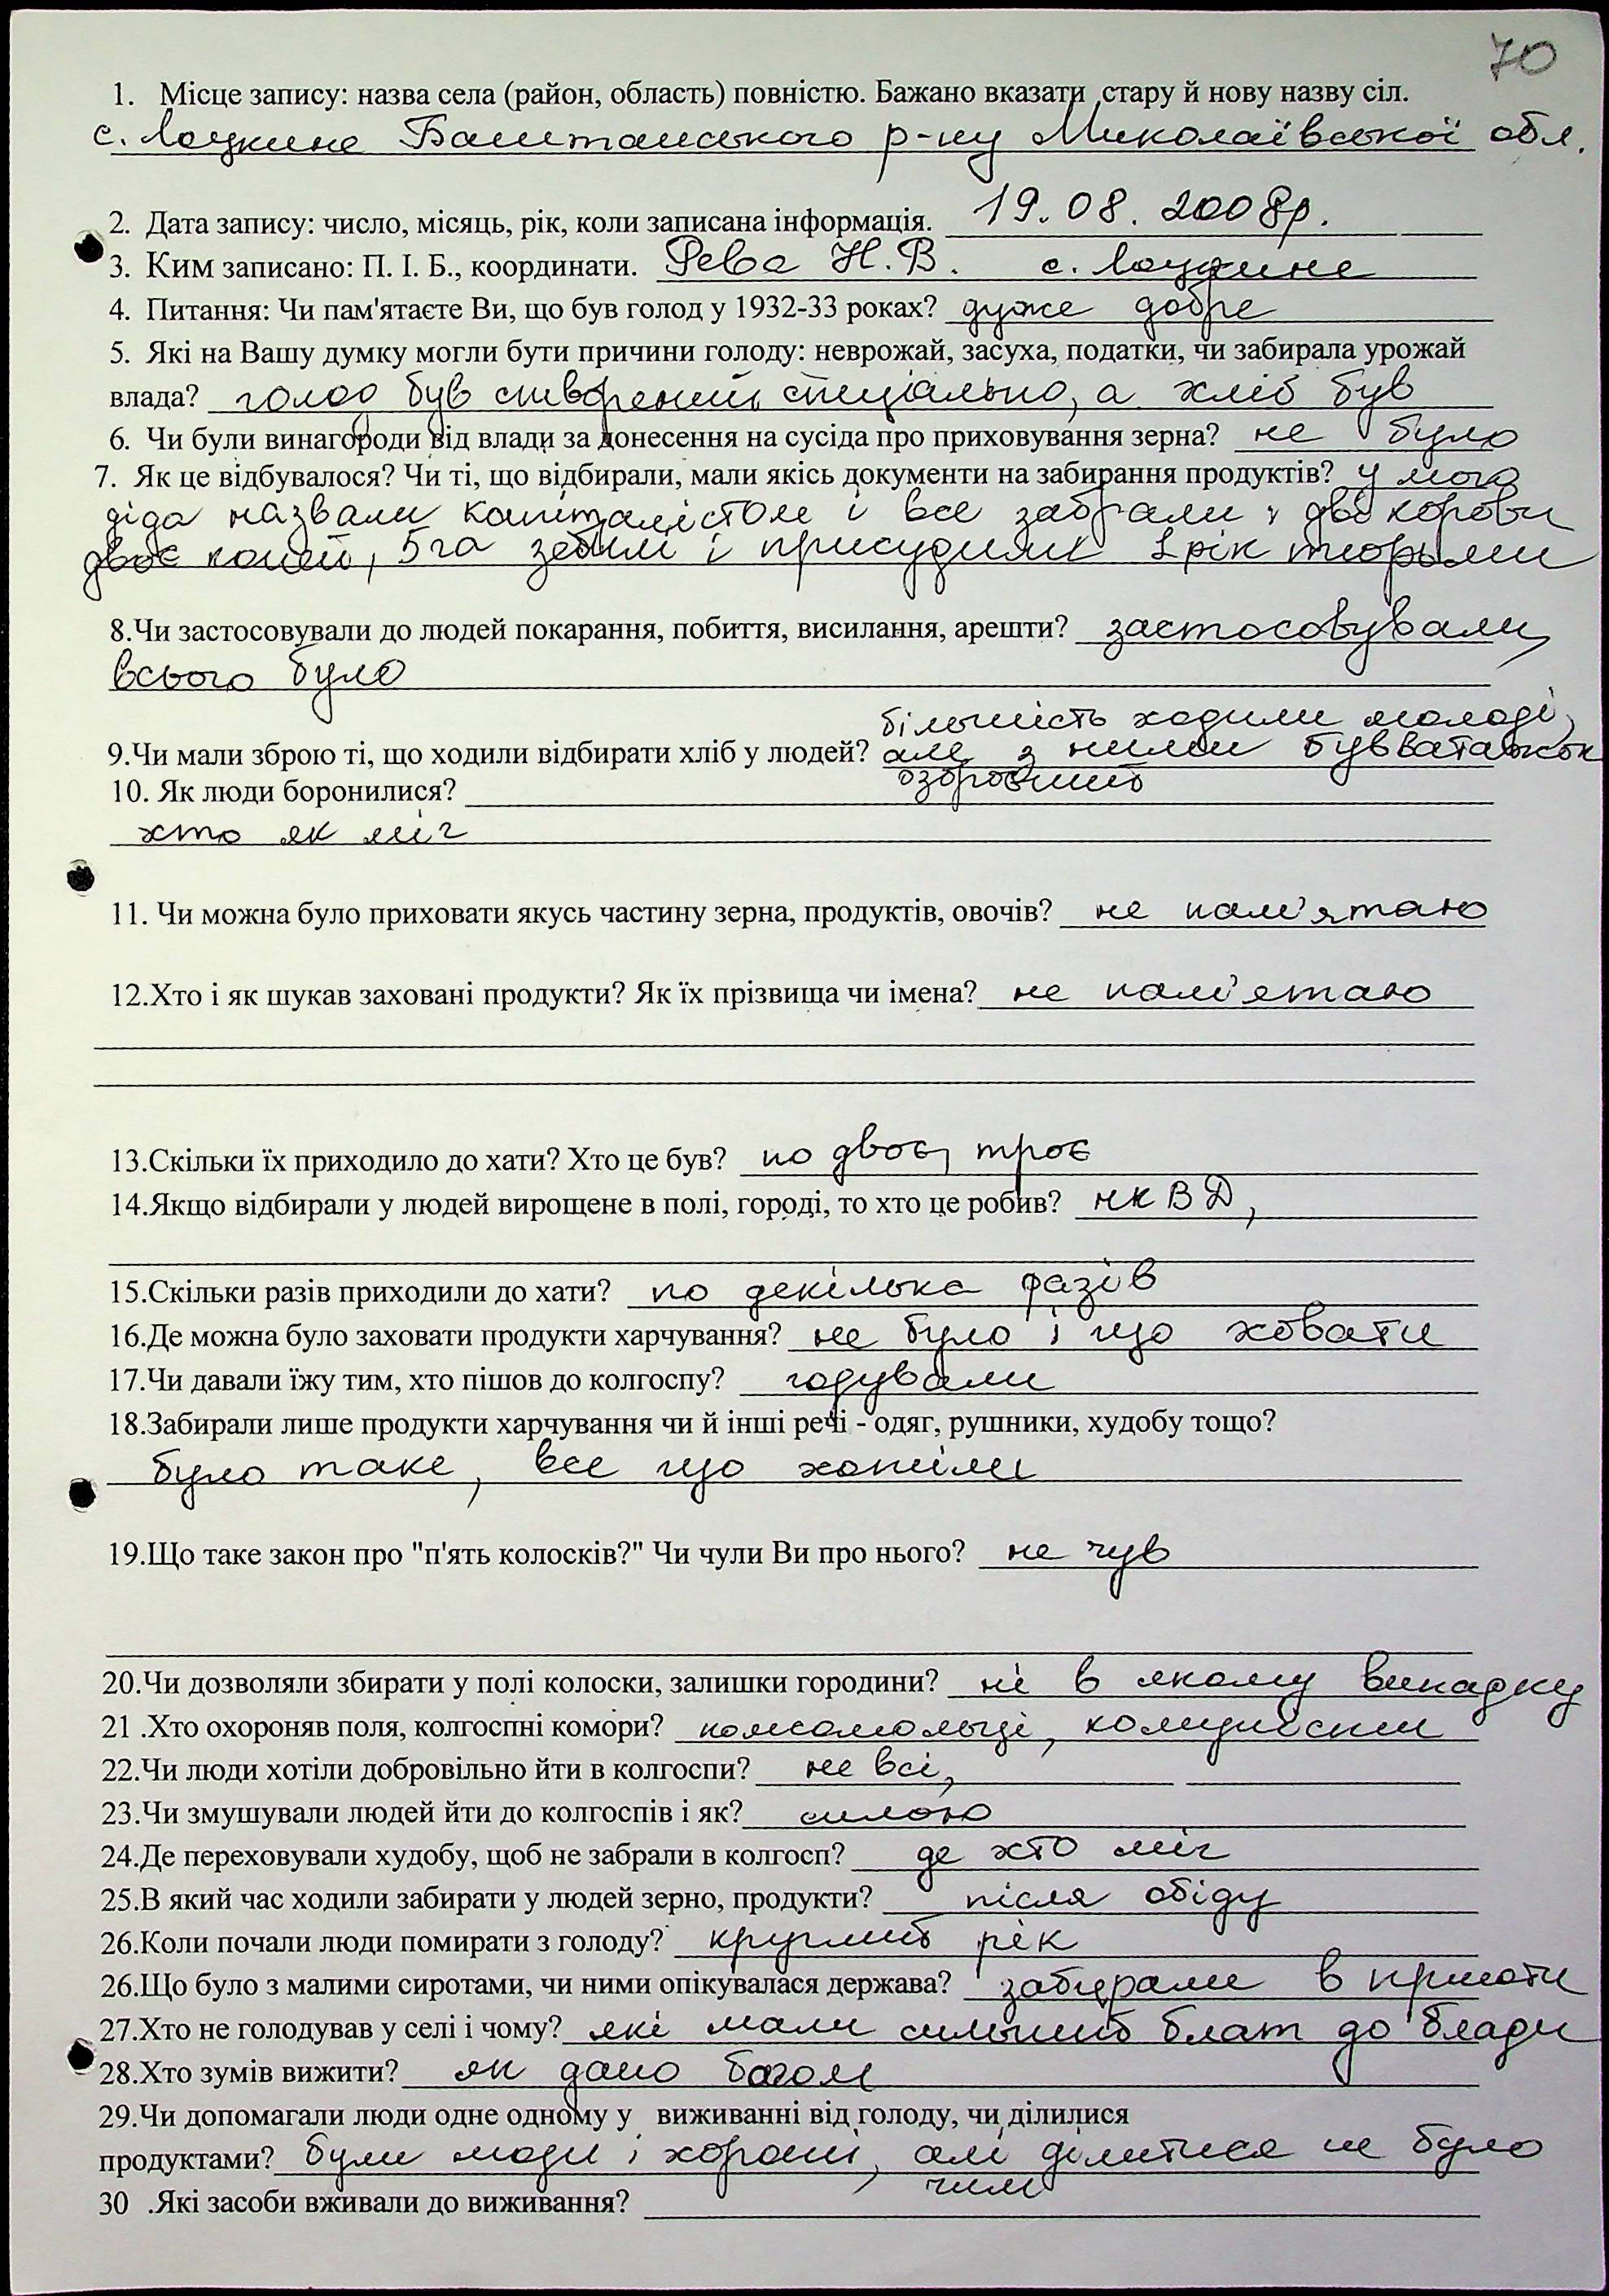 70
1. Місце запису: назва села (район, область) повністю. Бажано вказати стару й нову назву сіл.
с. Лоцкине Баштанського р-ну Миколаївської обл.
2. Дата запису: число, місяць, рік, коли записана інформація. 19.08.2008р.
3. Ким записано: П. І. Б., координати. Рева Н.В. с. Лоцкине
4. Питання: Чи пам'ятаєте Ви, що був голод у 1932-33 роках? дуже добре
5. Які на Вашу думку могли бути причини голоду: неврожай, засуха, податки, чи забирала урожай
влада? голод був створений спеціально, а хліб був
6. Чи були винагороди від влади за донесення на сусіда про приховування зерна? не було
7. Як це відбувалося? Чи ті, що відбирали, мали якісь документи на забирання продуктів? у мого
діда назвали капіталістом і все забрали: дві корови
двоє коней, 5 га землі і присудили 1 рік тюрьми
8.Чи застосовували до людей покарання, побиття, висилання, арешти? застосовували,
всього було
більшість ходили молоді,
9.Чи мали зброю ті, що ходили відбирати хліб у людей? але з ними був ватажок
озброєний
10. Як люди боронилися?
хто як міг
11. Чи можна було приховати якусь частину зерна, продуктів, овочів? не пам'ятаю
12.Хто і як шукав заховані продукти? Як їх прізвища чи імена? не пам'ятаю
13.Скільки їх приходило до хати? Хто це був? по двоє, троє
14.Якщо відбирали у людей вирощене в полі, городі, то хто це робив? НКВД,
15.Скільки разів приходили до хати? по декілька разів
16.Де можна було заховати продукти харчування? не було і що ховати
17.Чи давали їжу тим, хто пішов до колгоспу? годували
18.Забирали лише продукти харчування чи й інші речі - одяг, рушники, худобу тощо?
було таке, все що хотіли
19.Що таке закон про "п'ять колосків?" Чи чули Ви про нього? не чув
20.Чи дозволяли збирати у полі колоски, залишки городини? ні в якому випадку
21 .Хто охороняв поля, колгоспні комори? комсомольці, комуністи
22.Чи люди хотіли добровільно йти в колгоспи? не всі,
23.Чи змушували людей йти до колгоспів і як? силою
24.Де переховували худобу, щоб не забрали в колгосп? де хто міг
25.В який час ходили забирати у людей зерно, продукти? після обіду
26.Коли почали люди помирати з голоду? круглий рік
26.Що було з малими сиротами, чи ними опікувалася держава? забирали в приюти
27.Хто не голодував у селі і чому? які мали сильний блат до влади
28.Хто зумів вижити? як дано богом
29.Чи допомагали люди одне одному у виживанні від голоду, чи ділилися
продуктами? були люди і хороші, алі ділитися не було
чим
30 .Які засоби вживали до виживання?